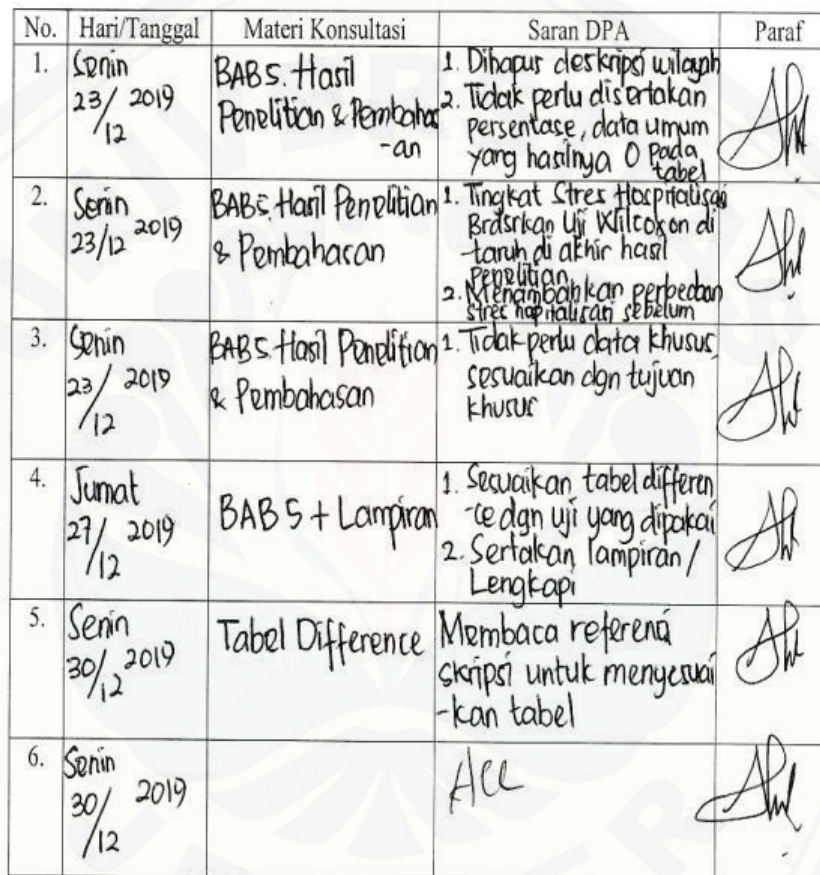 No. Hari/Tanggal Materi Konsultasi Saran DPA Paraf
1. Senin
23/12 2019
BAB 5. Hasil
Penelitian & Pembahas
-an
1. Dihapus deskripsi wilayah
2. Tidak perlu disertakan
persentase, data umum
yang hasilnya 0 pada
tabel
2. Senin
23/12 2019
BAB 5. Hasil Penelitian
& Pembahasan
1. Tingkat Stres Hospitalisasi
Brdsrkan Uji Wilcoxon di
taruh di akhir hasil
Penelitian
2. Menambahkan perbedaan
stres hopitalisasi sebelum
3. Senin
23/12 2019
BAB 5. Hasil Penelitian
& Pembahasan
1. Tidak perlu data khusus,
sesuaikan dgn tujuan
khusus
4. Jumat
27/12 2019
BAB 5 + Lampiran
1. Sesuaikan tabel differen
-ce dgn uji yang dipakai
2. Sertakan lampiran /
Lengkapi
5. Senin
30/12 2019
Tabel Difference
Membaca referensi
skripsi untuk menyesuai
-kan tabel
6. Senin
30/12 2019
Acc